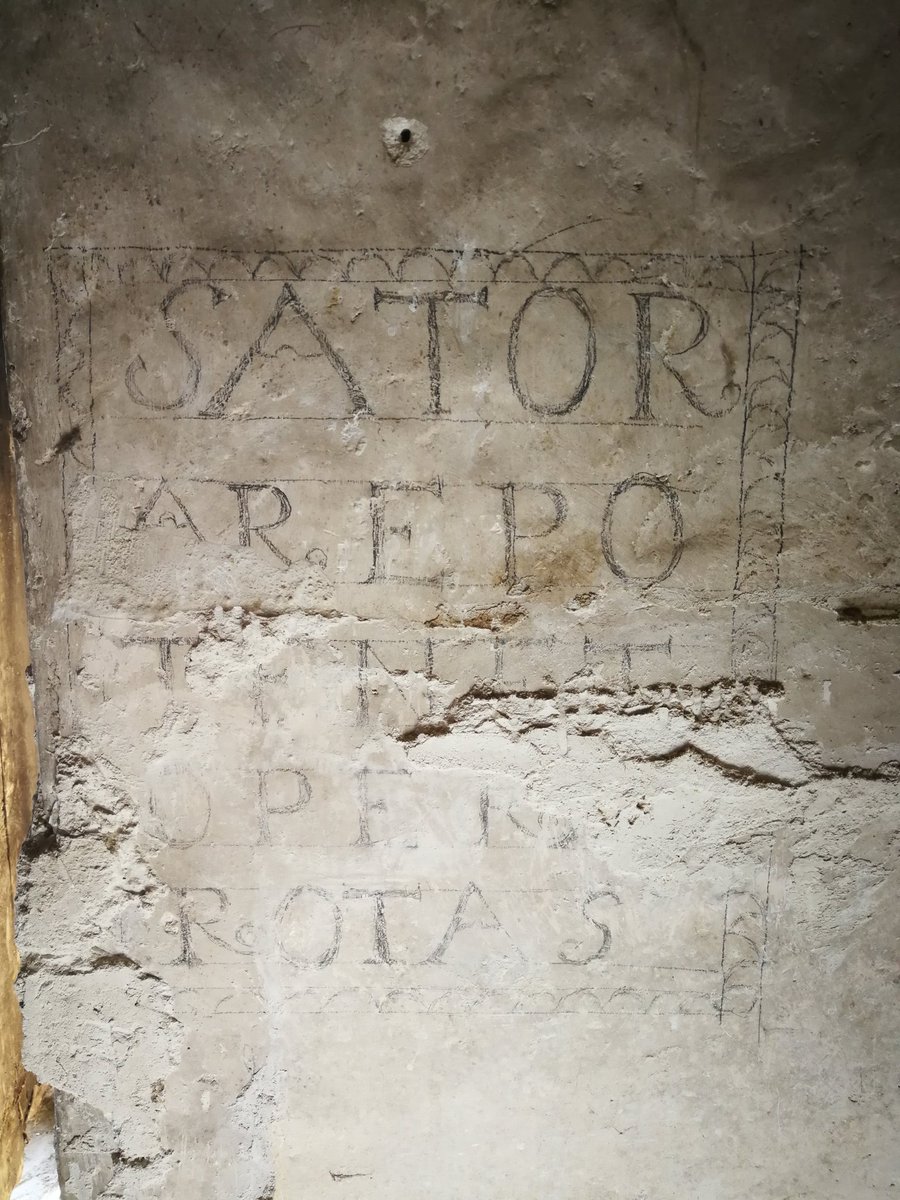 SATOR
AREPO
TENET
OPER
ROTAS